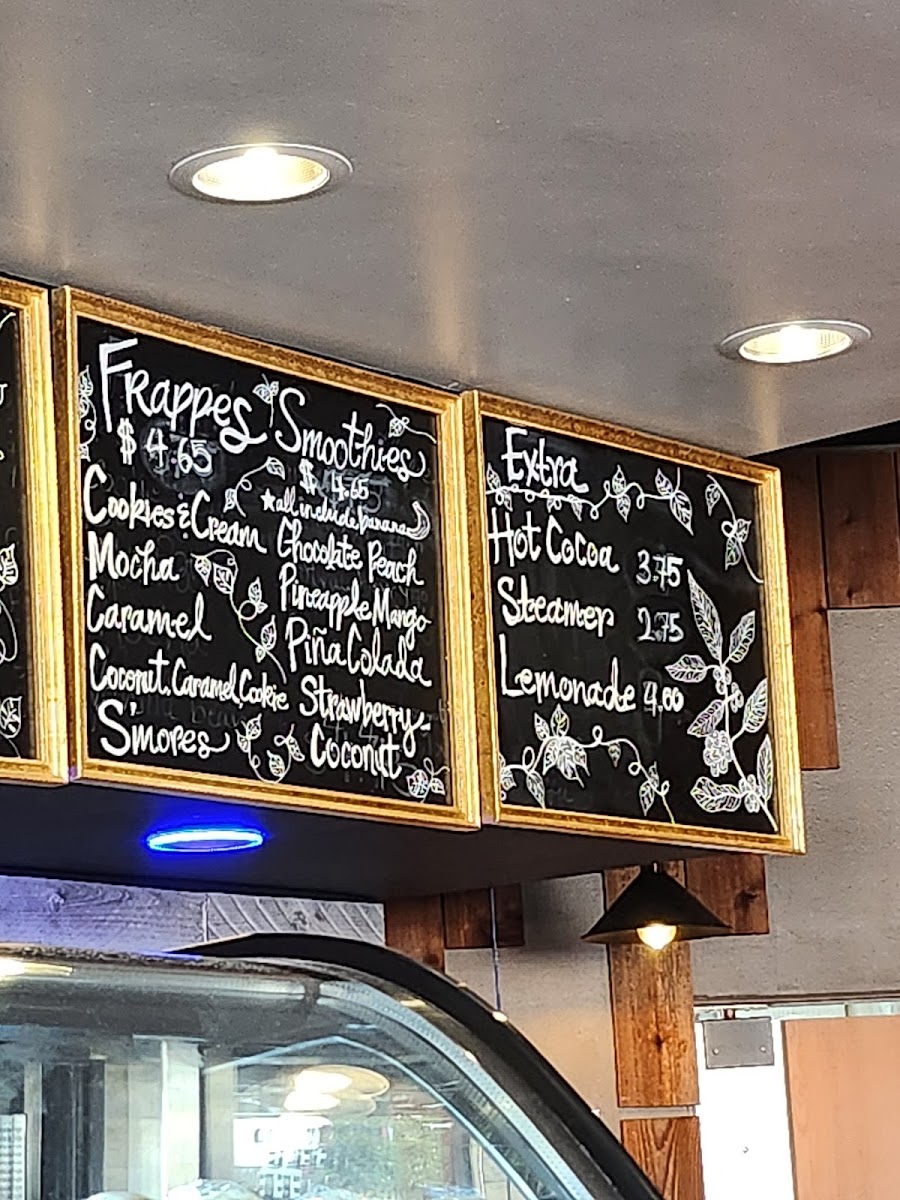 Frappes
$ 4.65
Cookies & Cream
Mocha
Caramel
Coconut, Caramel, Cookie
S'mores
Smoothies
$ 4.65
*all include banana
Chocolate Peach
Pineapple Mango
Piña Colada
Strawberry-
Coconut
Extra
Hot Cocoa 3.75
Steamer 2.75
Lemonade 4.00